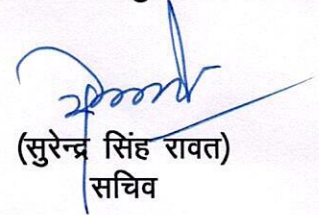 (सुरेन्द्र सिंह रावत)
सचिव